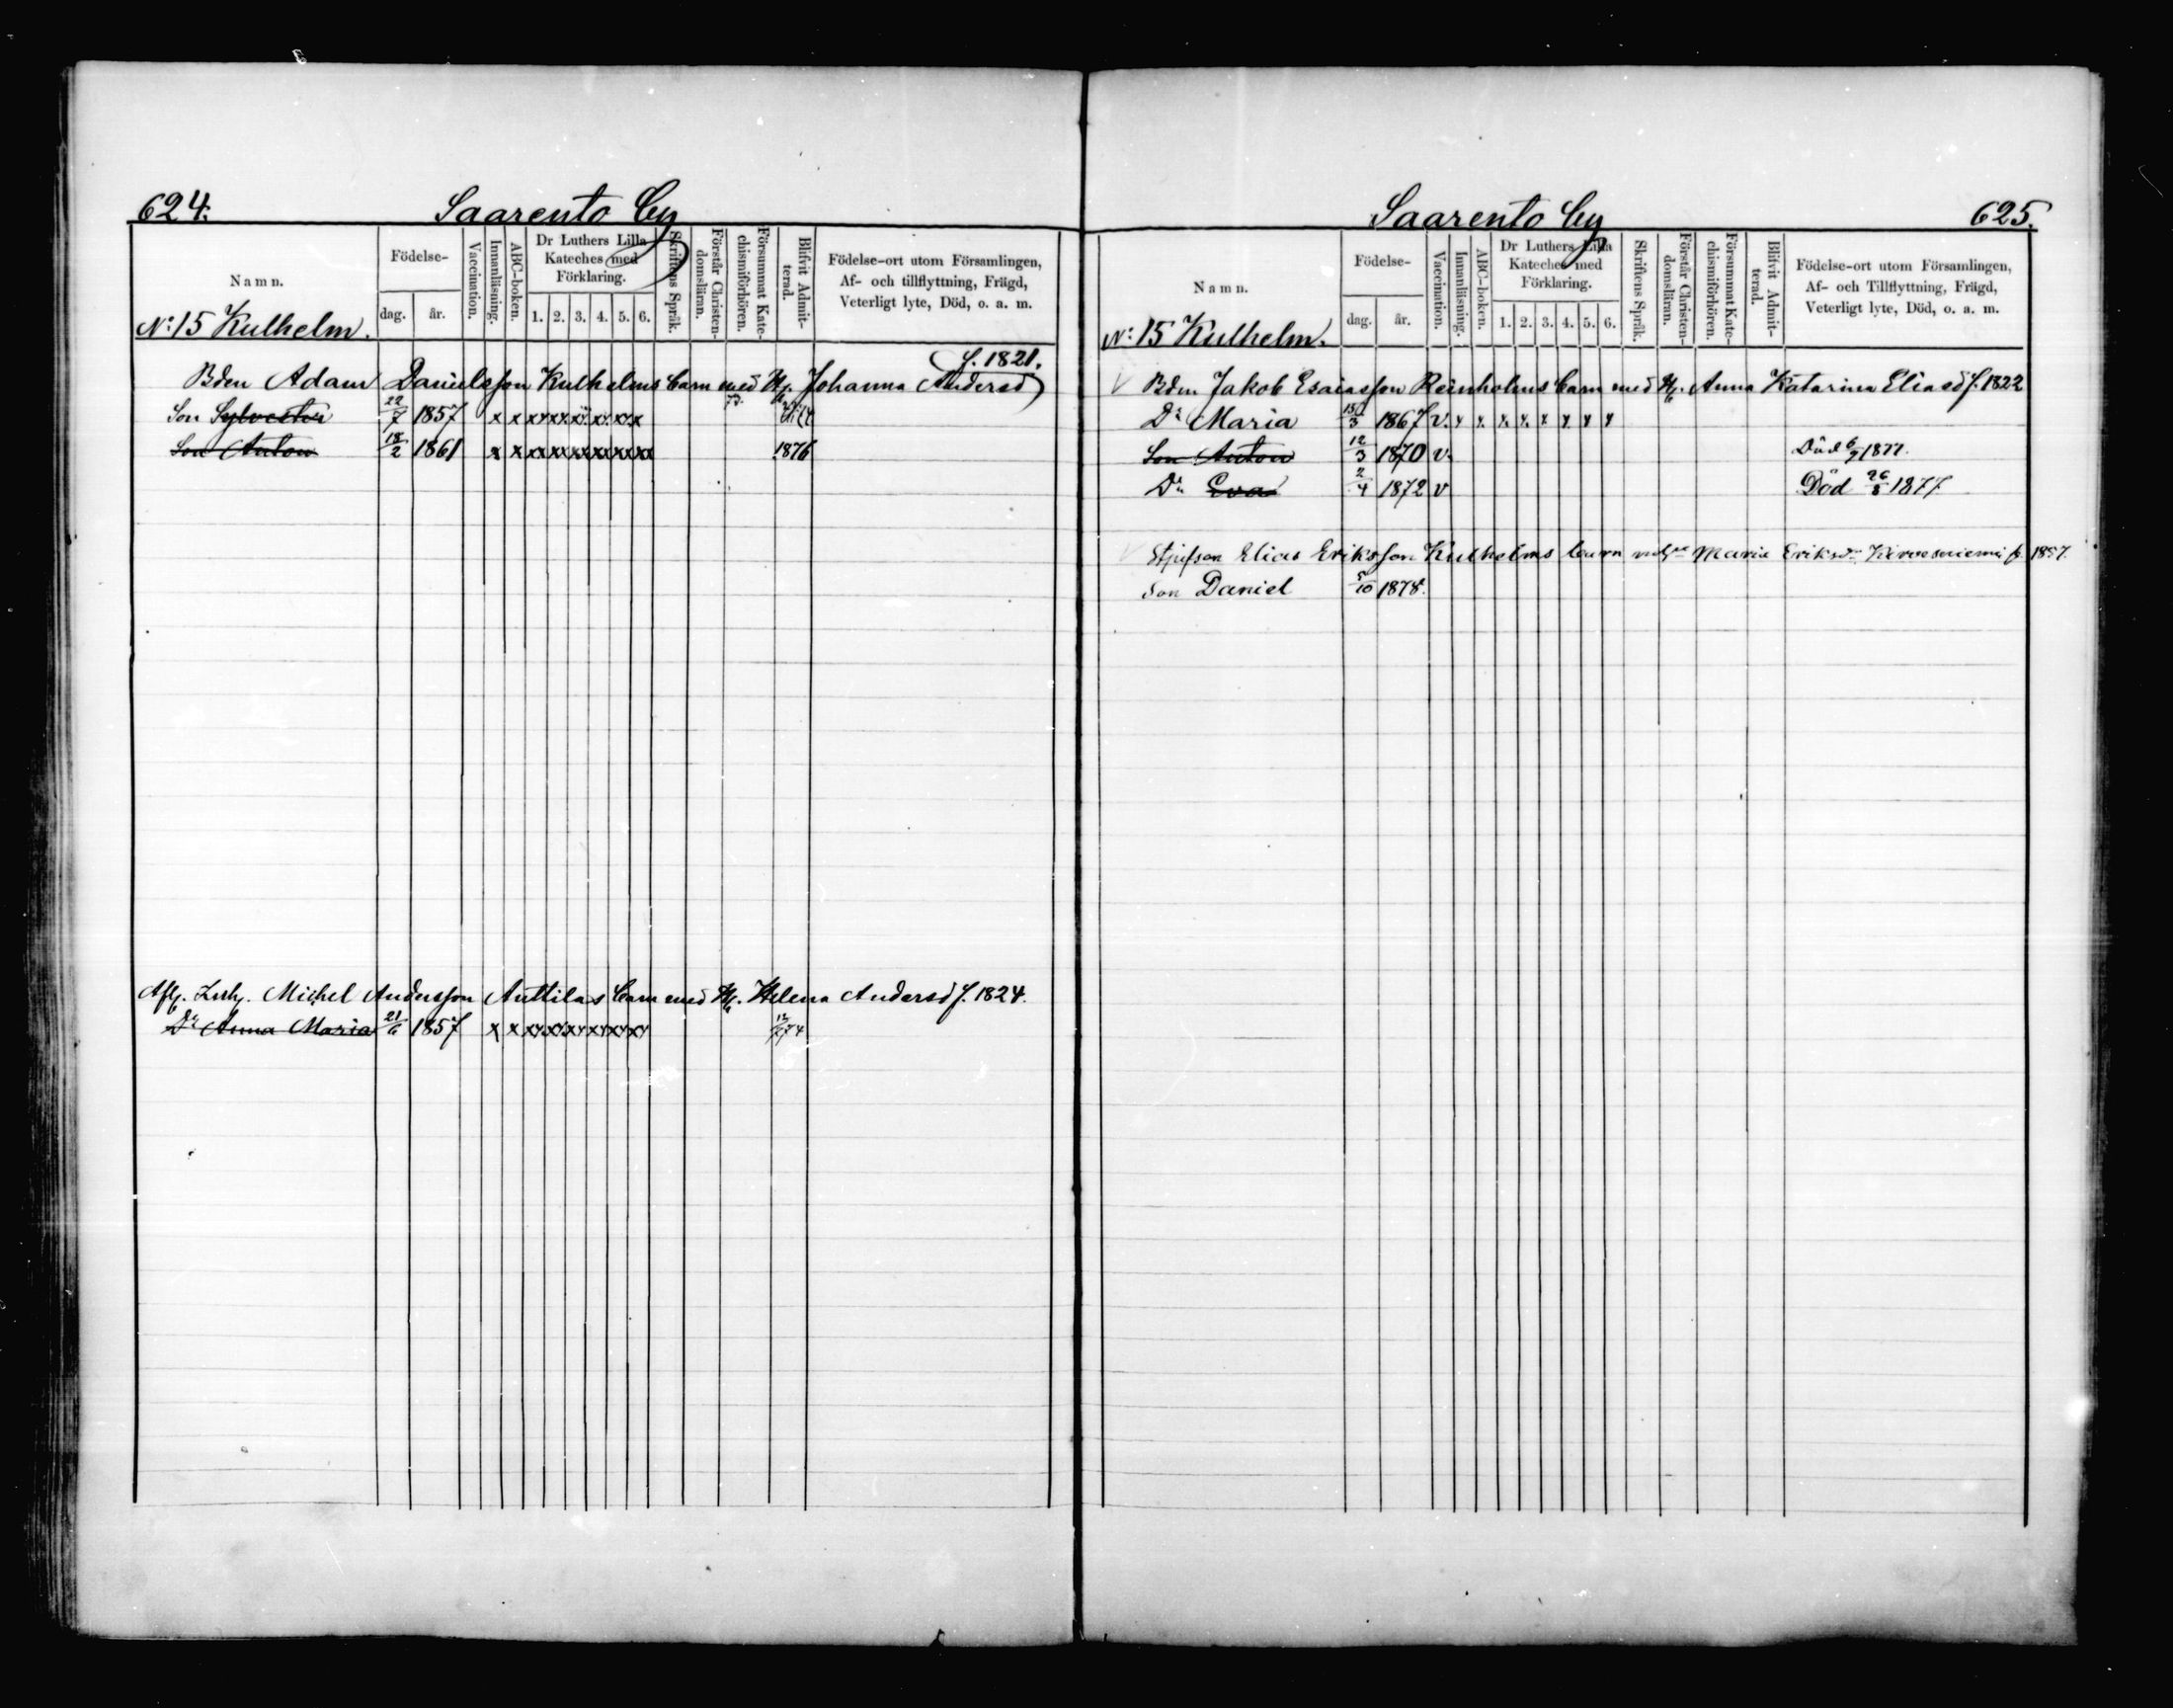 624.
Saarento by
Namn.
Födelse-
dag.
år.
Vaccination.
Innanläsning.
ABC-boken.
Dr Luthers Lilla
Kateches med
Förklaring.
1. 2. 3. 4. 5. 6.
Skriftens Språk.
Förstår Christen-
domsläran.
Försummat Kate-
chismiförhören.
Blifvit Admit-
terad.
Födelse-ort utom Församlingen,
Af- och tillflyttning, Frägd,
Veterligt lyte, Död, o. a. m.
N:15 Kulhelm.
f. 1821.
Bden Adam Danielsson Kulhelms barn med H. Johanna Andersd
Son Sylvester 22/7 1857 x x xx xx xx xx xx x 73.
Son Anton 18/2 1861 x x xx xx xx xx xx xx 1876
Afl. Inh. Michel Andersson Anttilas barn med H. Helena Andersd f. 1824.
Dr Anna Maria 21/6 1857 x x xx xx xx xx xx xx 12/7 74
625.
Saarento by
Namn.
Födelse-
dag.
år.
Vaccination.
Innanläsning.
ABC-boken.
Dr Luthers Lilla
Kateches med
Förklaring.
1. 2. 3. 4. 5. 6.
Skriftens Språk.
Förstår Christen-
domsläran.
Försummat Kate-
chismiförhören.
Blifvit Admit-
terad.
Födelse-ort utom Församlingen,
Af- och Tillflyttning, Frägd,
Veterligt lyte, Död, o. a. m.
N:15 Kulhelm.
V Bden Jakob Esaiasson Reinholms barn med H. Anna Katarina Eliasd f. 1822
Dr Maria 15/3 1867 v. x x x x x x x x
Son Anton 12/3 1870 v. Död 6/7 1877.
Dr Eva 2/4 1872 v Död 26/8 1877
V Styfson Elias Eriksson Kulhelms barn Maria Eriksdr f. 1857.
Son Daniel 5/10 1878.